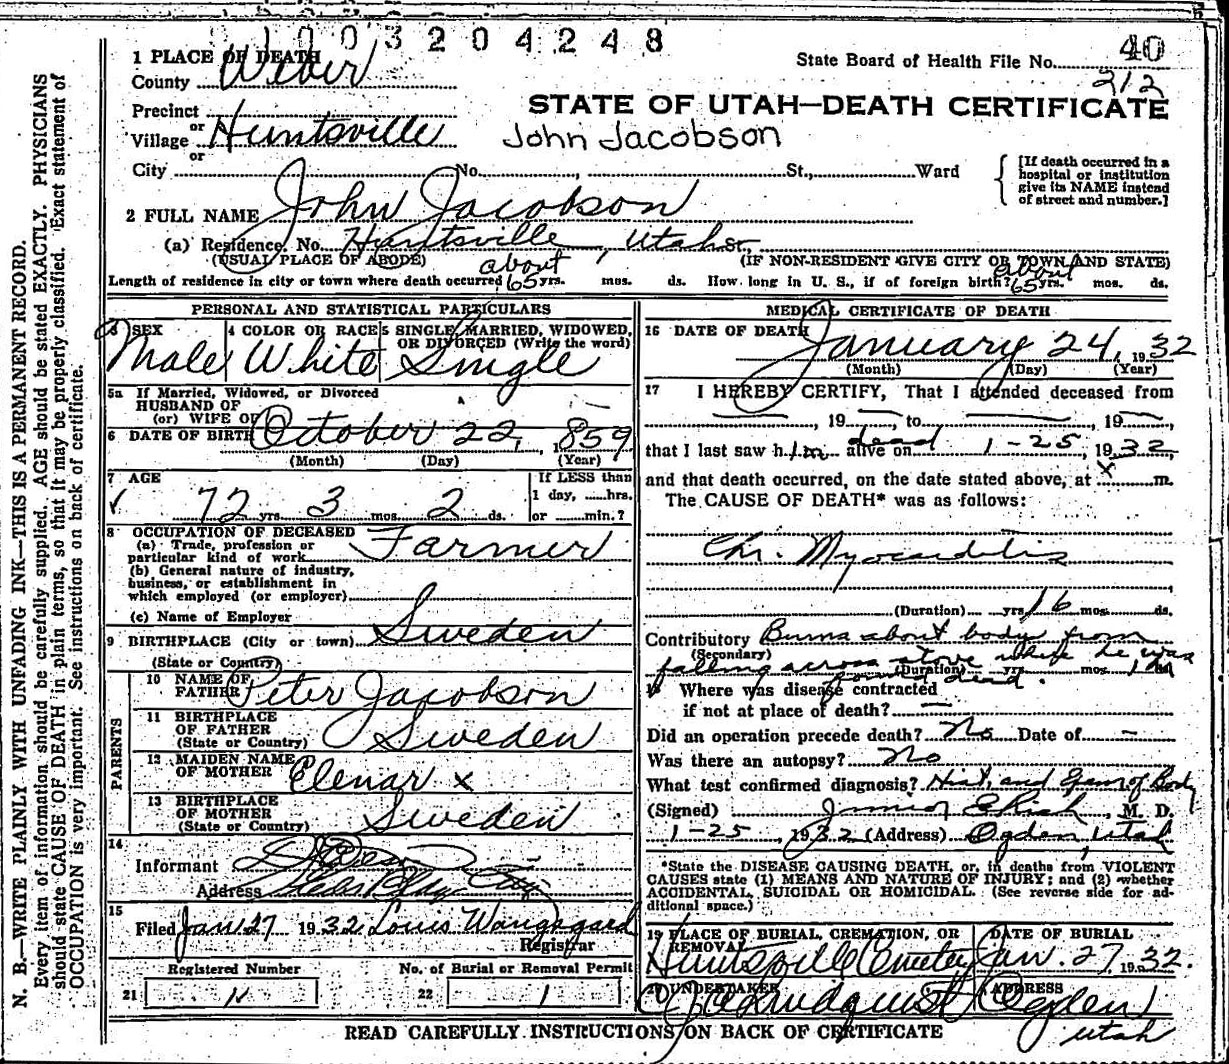 1 0 0 3 2 0 4 2 4 8
1 PLACE OF DEATH
County Weber
State Board of Health File No. 40
212
Precinct
or
Village Huntsville
or
STATE OF UTAH—DEATH CERTIFICATE
John Jacobson
City No. , St., Ward
[If death occurred in a hospital or institution give its NAME instead of street and number.]
2 FULL NAME John Jacobson
(a) Residence. No. Huntsville, Utah St.,
(USUAL PLACE OF ABODE) (IF NON-RESIDENT GIVE CITY OR TOWN AND STATE)
Length of residence in city or town where death occurred about 65 yrs. mos. ds. How long in U. S., if of foreign birth? about 65 yrs. mos. ds.
PERSONAL AND STATISTICAL PARTICULARS
3 SEX 4 COLOR OR RACE 5 SINGLE, MARRIED, WIDOWED, OR DIVORCED (Write the word)
Male White Single
5a If Married, Widowed, or Divorced
HUSBAND OF
(or) WIFE OF
6 DATE OF BIRTH October 22, 1859
(Month) (Day) (Year)
7 AGE If LESS than
1 day, hrs.
72 yrs. 3 mos. 2 ds. or min.?
8 OCCUPATION OF DECEASED
(a) Trade, profession or particular kind of work Farmer
(b) General nature of industry, business, or establishment in which employed (or employer)
(c) Name of Employer
9 BIRTHPLACE (City or town) Sweden
(State or Country)
PARENTS
10 NAME OF FATHER Peter Jacobson
11 BIRTHPLACE OF FATHER (State or Country) Sweden
12 MAIDEN NAME OF MOTHER Elenar x
13 BIRTHPLACE OF MOTHER (State or Country) Sweden
14
Informant
Address
15
Filed Jan 27 1932 Louis Wangsgard
Registrar
Registered Number No. of Burial or Removal Permit
21 22 1
MEDICAL CERTIFICATE OF DEATH
16 DATE OF DEATH January 24, 1932
(Month) (Day) (Year)
17 I HEREBY CERTIFY, That I attended deceased from
, 19 to , 19
that I last saw him dead alive on 1-25, 1932,
and that death occurred, on the date stated above, at x m.
The CAUSE OF DEATH* was as follows:
Chr. Myocarditis
(Duration) yrs. 6 mos. ds.
Contributory Burns about body from
(Secondary)
falling across stove where he was
found dead.
(Duration) yrs. mos. ds.
18 Where was disease contracted
if not at place of death? —
Did an operation precede death? No Date of —
Was there an autopsy? No
What test confirmed diagnosis? Hist, and Exam of Body
(Signed) Junior E Rich, M. D.
1-25, 1932 (Address) Ogden, Utah
*State the DISEASE CAUSING DEATH, or, in deaths from VIOLENT
CAUSES state (1) MEANS AND NATURE OF INJURY; and (2) whether
ACCIDENTAL, SUICIDAL OR HOMICIDAL. (See reverse side for additional space.)
19 PLACE OF BURIAL, CREMATION, OR REMOVAL DATE OF BURIAL
Huntsville Cemetery Jan. 27 1932.
20 UNDERTAKER ADDRESS
Lindquist Ogden
Utah
READ CAREFULLY INSTRUCTIONS ON BACK OF CERTIFICATE
N. B.—WRITE PLAINLY WITH UNFADING INK—THIS IS A PERMANENT RECORD.
Every item of information should be carefully supplied. AGE should be stated EXACTLY. PHYSICIANS
should state CAUSE OF DEATH in plain terms, so that it may be properly classified. Exact statement of
OCCUPATION is very important. See instructions on back of certificate.